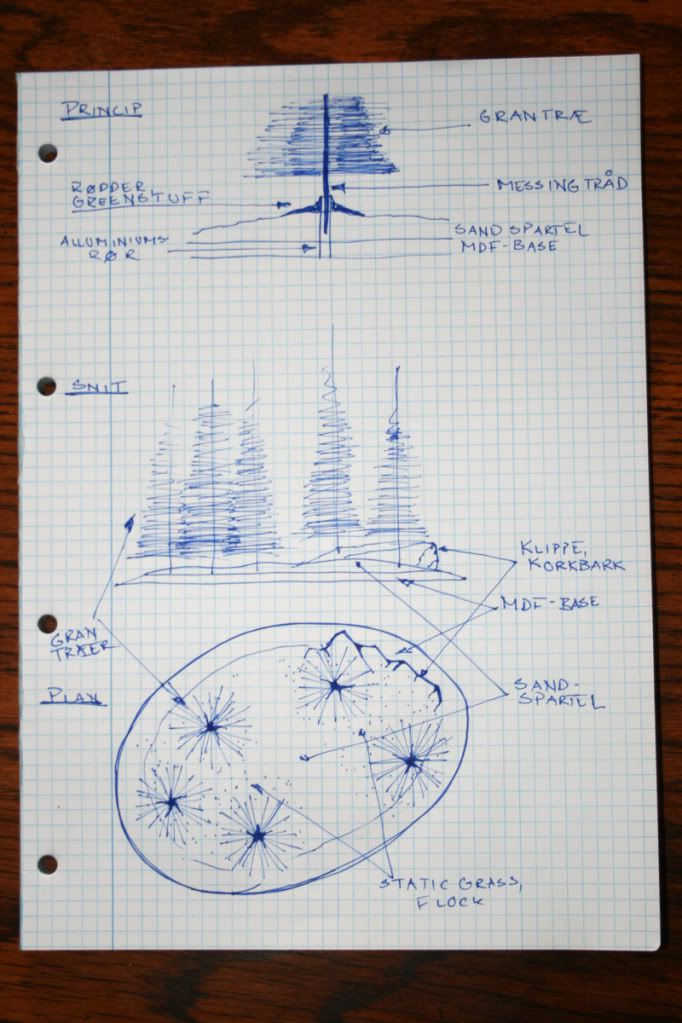 PRINCIP
GRANTRÆ
RØDDER
GREENSTUFF
MESSINGTRÅD
ALLUMINIUMS-
RØR
SANDSPARTEL
MDF-BASE
SNIT
KLIPPE,
KORKBARK
MDF-BASE
GRAN
TRÆER
PLAN
SAND-
SPARTEL
STATIC GRASS,
FLOCK